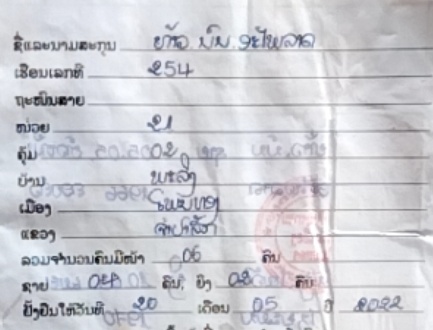 ຊື່ແລະນາມສະກຸນ ທ້າວ ບົນ
ເຮືອນເລກທີ 254
ຖະໜົນສາຍ
ໜ່ວຍ 21
ຄຸ້ມ 02
ບ້ານ
ເມືອງ ໂພນທອງ
ແຂວງ ຈຳປາສັກ
ລວມຈຳນວນຄົນມີໜ້າ 06 ຄົນ
ຊາຍ 04 ຄົນ, ຍິງ 02 ຄົນ
ຢັ້ງຢືນໃຫ້ວັນທີ 20 ເດືອນ 05 ປີ 2022